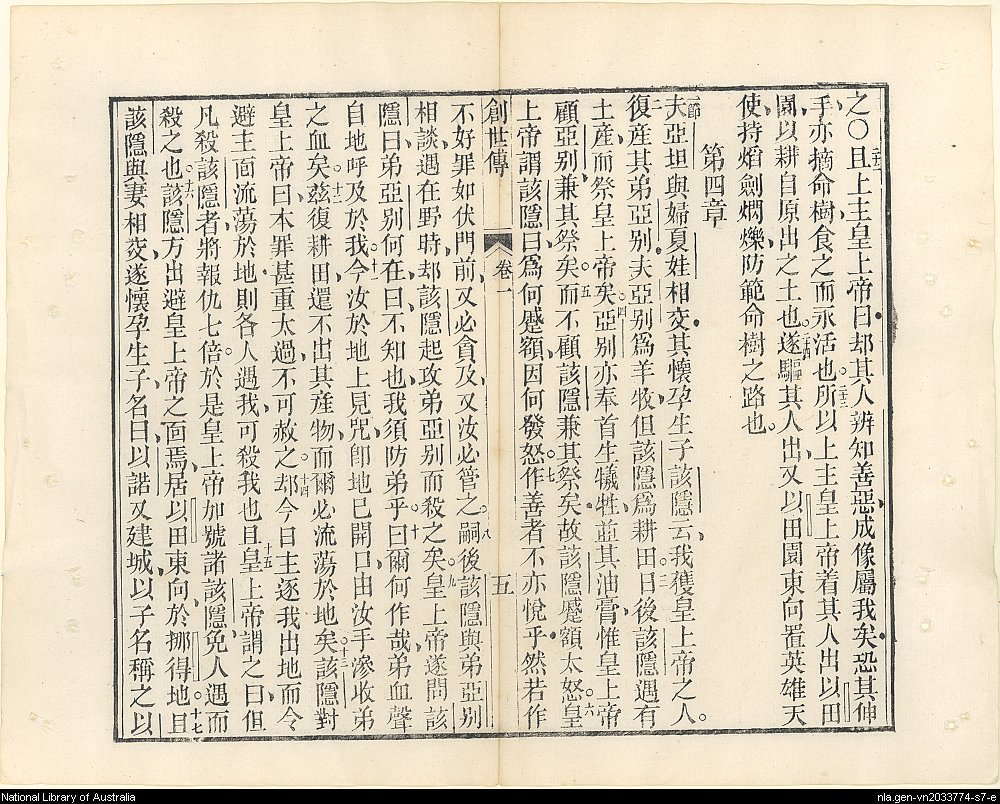 之○且上主皇上帝曰却其人辨知善惡成像屬我矣恐其伸
二十二
手亦摘命樹食之而永活也所以上主皇上帝着其人出以田
二十三
園以耕自原出之土也遂驅其人出又以田園東向置英雄天
二十四
使持熖劍燜爍防範命樹之路也
第四章
一節
夫亞坦與婦夏娃相交其懷孕生子該隱云我獲皇上帝之人
二
復產其弟亞别夫亞别為羊牧但該隱為耕田日後該隱遇有
三
土產而祭皇上帝矣亞别亦奉首生犧牲並其油膏惟皇上帝
四
顧亞别兼其祭矣而不顧該隱兼其祭矣故該隱蹙額太怒皇
五
六
上帝謂該隱曰為何蹙額因何發怒作善者不亦悅乎然若作
七
創世傳
卷一
五
不好罪如伏門前又必貪及又汝必管之嗣後該隱與弟亞别
八
相談遇在野時却該隱起攻弟亞别而殺之矣皇上帝遂問該
九
隱曰弟亞别何在曰不知也我須防弟乎曰爾何作哉弟血聲
十
自地呼及於我今汝於地上見咒卽地已開口由汝手滲收弟
十一
之血矣茲復耕田還不出其產物而爾必流蕩於地矣該隱對
十二
十三
皇上帝曰本罪甚重太過不可赦之却今日主逐我出地而今
十四
避主面流蕩於地則各人遇我可殺我也且皇上帝謂之曰但
十五
凡殺該隱者將報仇七倍於是皇上帝加號諸該隱免人遇而
殺之也該隱方出避皇上帝之面焉居以田東向於挪得地且
十六
十七
該隱與妻相交遂懷孕生子名曰以諾又建城以子名稱之以